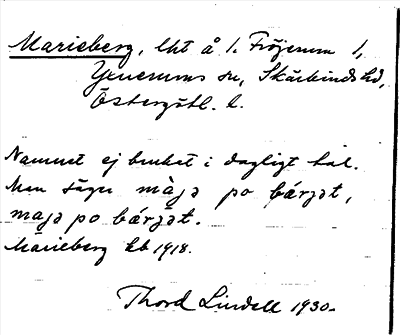 Marieberg, lht å 1. Fröjerum 1,
Yxnerums sn, Skärkinds hd,
Östergötl. l.
Namnet ej brukat i dagligt tal.
Men säger màja po bárjət,
maja po bárjət.
Marieberg kb 1918.
Thord Lindell 1930.